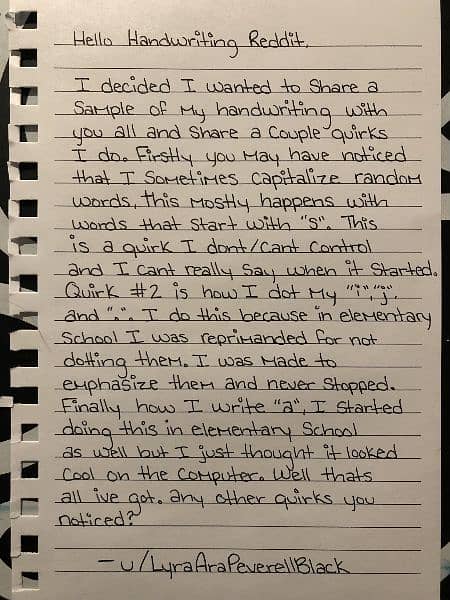 Hello Handwriting Reddit,
I decided I wanted to Share a
Sample of My handwriting with
you all and Share a Couple quirks
I do. Firstly you May have noticed
that I SoMetiMes Capitalize randoM
words, this Mostly happens with
words that Start with "S". This
is a quirk I dont/Cant Control
and I Cant really Say when it Started.
Quirk #2 is how I dot My "i", "j",
and ".". I do this because in eleMentary
School I was repriManded for not
dotting theM. I was Made to
eMphasize theM and never Stopped.
Finally how I write "a", I Started
doing this in eleMentary School
as well but I just thought it looked
Cool on the CoMputer. Well thats
all ive got. any other quirks you
noticed?
- u/LyraAraPeverellBlack